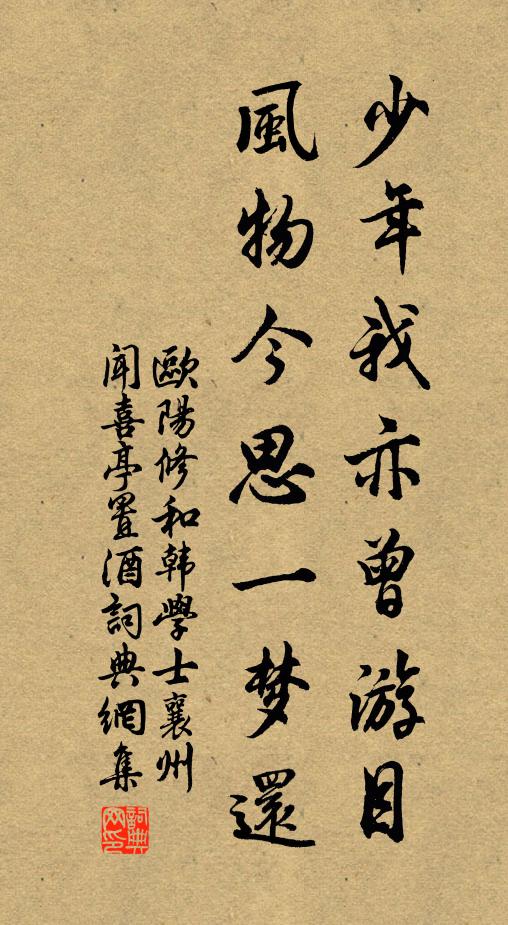 少年我亦曾游目
風物今思一梦還
歐陽修和韩學士襄州
闻喜亭置酒詞典網集
詞典
网印